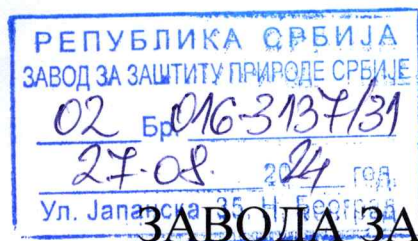 РЕПУБЛИКА СРБИЈА
ЗАВОД ЗА ЗАШТИТУ ПРИРОДЕ СРБИЈЕ
02 Бр 016-3137/31
27-08. 2024 год.
Ул. Јапанска 35, Н. Београд
ЗАВОДА ЗА